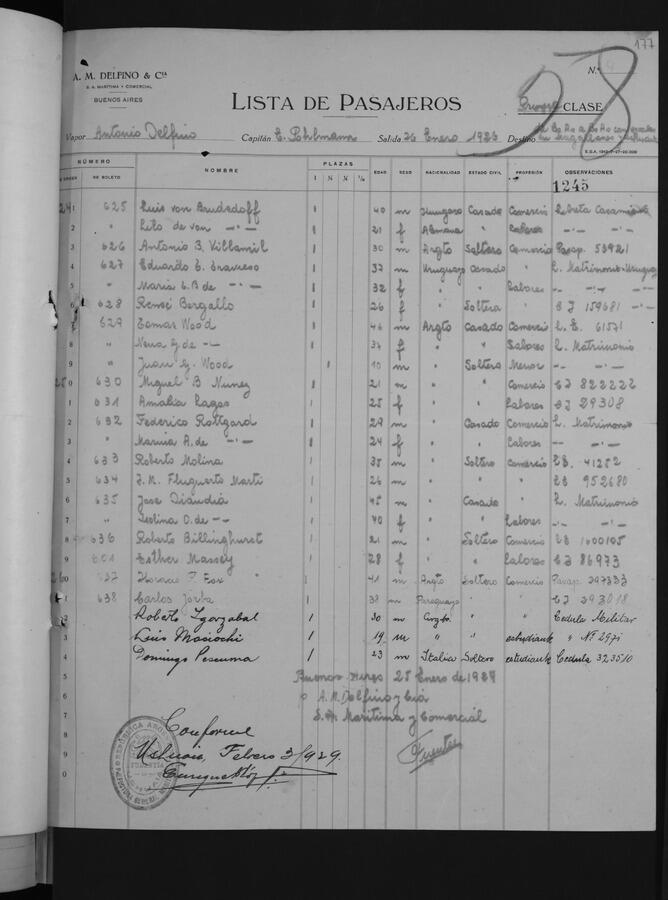 177
A. M. DELFINO & Cía
S. A. MARÍTIMA Y COMERCIAL
BUENOS AIRES
Nº
LISTA DE PASAJEROS CLASE
Vapor Antonio Delfino Capitán E. Pohlmann Salida 26 Enero 1929 Destino
NÚMERO NOMBRE PLAZAS EDAD SEXO NACIONALIDAD ESTADO CIVIL PROFESIÓN OBSERVACIONES
DE ORDEN DE BOLETO 1 ½ ¼ ⅛ 1245
1 625 Luis von 1 40 m Hungaro Casado Comercio Libreta
2 " de von -"- 1 21 f Alemana " Labores -"-
3 626 Antonio B. Villamil 1 30 m Argto Soltero Comercio Pasap. 53921
4 627 Eduardo E. Travieso 1 37 m Uruguayo Casado " L. Matrimonio Uruguay
5 " Maria G. B de -"- 1 32 f " " Labores -"-
6 628 Bergallo 1 26 f " Soltera " C I 159681
7 629 Wood 1 46 m Argto Casado Comercio L. E. 61571
8 " Nena G de -"- 1 37 f " " Labores L. Matrimonio
9 " Juan G. Wood 1 10 m " Soltero Menor -"-
0 630 Miguel B Nunez 1 21 m " " Comercio C I 822222
1 631 Amalia Lagos 1 25 f " " Labores C I 29308
2 632 Federico Rottgard 1 29 m " Casado Comercio L. Matrimonio
3 " Marina A. de -"- 1 24 f " " Labores -"-
4 633 Roberto Molina 1 35 m " Soltero Comercio 41252
5 634 J. M. Fluguerto Marti 1 26 m " " " 952680
6 635 Jose Diaudia 1 45 m " Casado " L. Matrimonio
7 " O. de -"- 1 40 f " " Labores -"-
8 636 Roberto Billinghurst 1 21 m " Soltero Comercio 1000105
9 601 Esther Massey 1 28 f " " Labores C I 86973
637 Horacio F Fox 1 41 m Argto Soltero Comercio Pasap. 297333
1 638 Carlos Jorba 1 38 m Paraguayo " " C I 293018
2 Roberto Igarzabal 1 30 m Argto. " " Cedula Militar
3 Luis Maiochi 1 19 m " " estudiante " Nº 2971
4 Domingo Pescuma 1 23 m Italia Soltero estudiante Cedula 323510
5 Buenos Aires 25 Enero de 1929
6 p A. M. Delfino y Cia
7 S. A. Maritima y Comercial
Conforme
Ushuaia, Febrero 3/929.